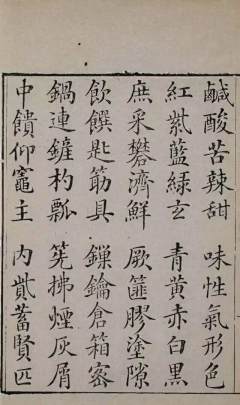 鹹酸苦辣甜 味性氣形色
紅紫藍綠玄 青黃赤白黑
庶采礬濟鮮 厥篚膠塗隙
飲饌匙筯具 鏁鑰倉箱密
鍋連鏟杓瓢 筅拂煙灰屑
中饋仰竈主 內貲蓄賢匹